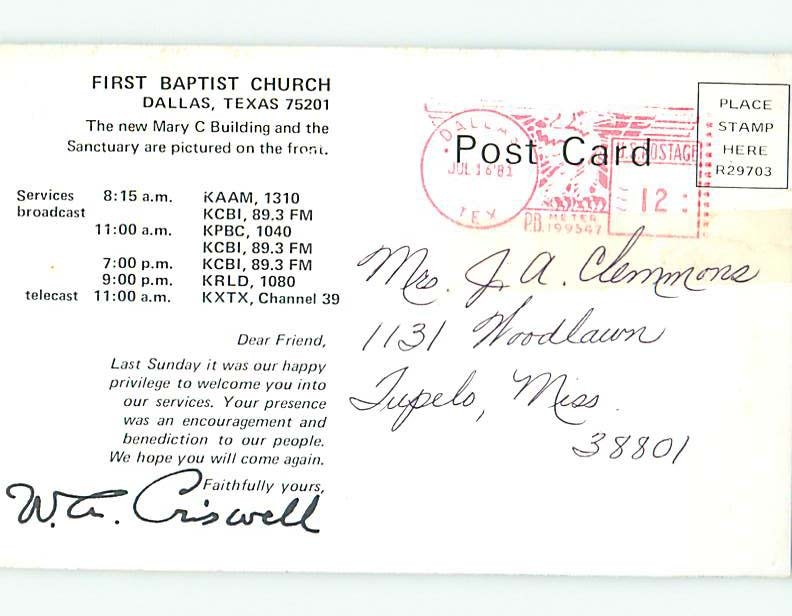 FIRST BAPTIST CHURCH
DALLAS, TEXAS 75201
The new Mary C Building and the
Sanctuary are pictured on the front.
Services 8:15 a.m. KAAM, 1310
broadcast KCBI, 89.3 FM
11:00 a.m. KPBC, 1040
KCBI, 89.3 FM
7:00 p.m. KCBI, 89.3 FM
9:00 p.m. KRLD, 1080
telecast 11:00 a.m. KXTX, Channel 39
Dear Friend,
Last Sunday it was our happy
privilege to welcome you into
our services. Your presence
was an encouragement and
benediction to our people.
We hope you will come again.
Faithfully yours,
W. A. Criswell
Post Card
DALLAS
JUL 16'81
TEX
U.S. POSTAGE
12
P.B. METER
199547
PLACE
STAMP
HERE
R29703
Mrs. J. A. Clemmons
1131 Woodlawn
Tupelo, Miss.
38801